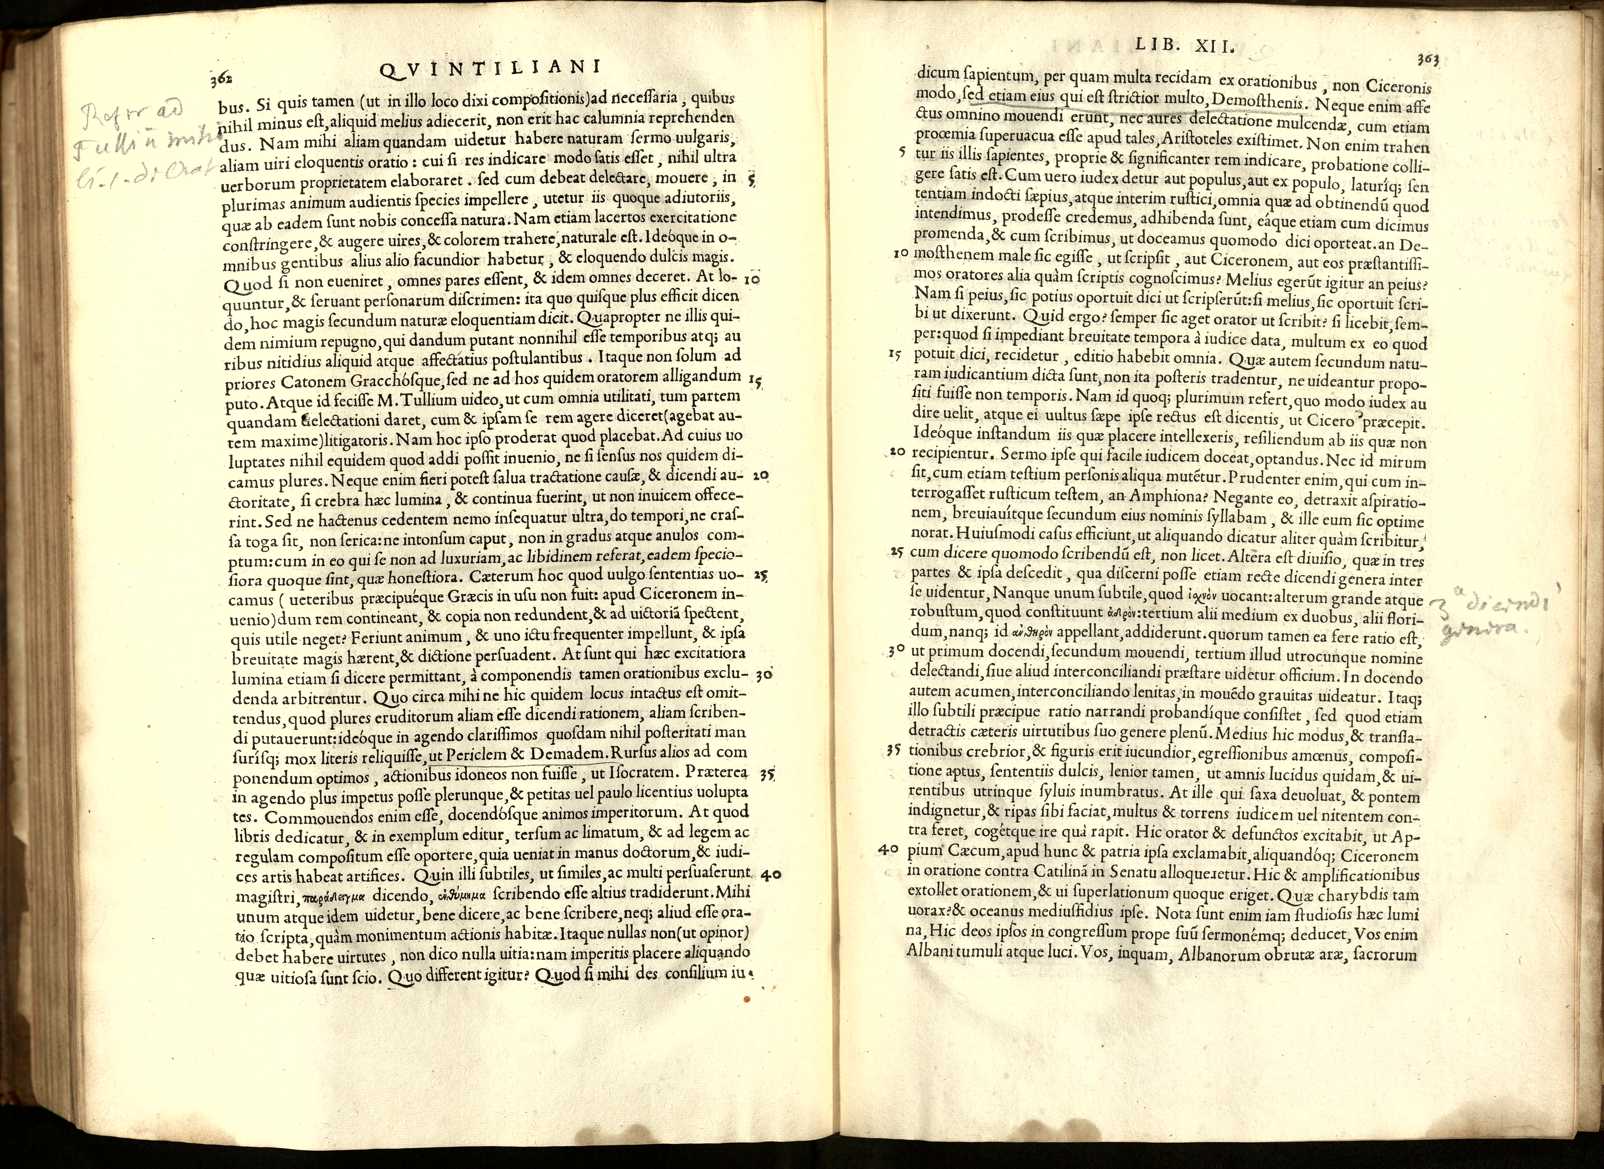 362
QVINTILIANI
Refer ad
bus. Si quis tamen (ut in illo loco dixi compositionis)ad necessaria, quibus
nihil minus est,aliquid melius adiecerit, non erit hac calumnia reprehenden
dus. Nam mihi aliam quandam uidetur habere naturam sermo uulgaris,
aliam uiri eloquentis oratio: cui si res indicare modo satis esset, nihil ultra
uerborum proprietatem elaboraret. sed cum debeat delectare, mouere, in 5
plurimas animum audientis species impellere, utetur iis quoque adiutoriis,
quæ ab eadem sunt nobis concessa natura. Nam etiam lacertos exercitatione
constringere,& augere uires,& colorem trahere,naturale est. Ideóque in o-
mnibus gentibus alius alio facundior habetur, & eloquendo dulcis magis.
Quod si non eueniret, omnes pares essent, & idem omnes deceret. At lo- 10
quuntur,& seruant personarum discrimen: ita quo quisque plus efficit dicen
do,hoc magis secundum naturæ eloquentiam dicit. Quapropter ne illis qui-
dem nimium repugno,qui dandum putant nonnihil esse temporibus atq; au
ribus nitidius aliquid atque affectatius postulantibus. Itaque non solum ad
priores Catonem Gracchósque,sed ne ad hos quidem oratorem alligandum 15
puto. Atque id fecisse M. Tullium uideo,ut cum omnia utilitati, tum partem
quandam delectationi daret, cum & ipsam se rem agere diceret(agebat au-
tem maxime)litigatoris. Nam hoc ipso proderat quod placebat. Ad cuius uo
luptates nihil equidem quod addi possit inuenio, ne si sensus nos quidem di-
camus plures. Neque enim fieri potest salua tractatione causæ, & dicendi au- 20
ctoritate, si crebra hæc lumina, & continua fuerint, ut non inuicem offece-
rint. Sed ne hactenus cedentem nemo insequatur ultra,do tempori,ne cras-
sa toga sit, non serica: ne intonsum caput, non in gradus atque anulos com-
ptum: cum in eo qui se non ad luxuriam,ac libidinem referat,eadem specio-
siora quoque sint, quæ honestiora. Cæterum hoc quod uulgo sententias uo- 25
camus ( ueteribus præcipuéque Græcis in usu non fuit: apud Ciceronem in-
uenio)dum rem contineant, & copia non redundent,& ad uictoriã spectent,
quis utile neget? Feriunt animum, & uno ictu frequenter impellunt, & ipsa
breuitate magis hærent,& dictione persuadent. At sunt qui hæc excitatiora
lumina etiam si dicere permittant, à componendis tamen orationibus exclu- 30
denda arbitrentur. Quo circa mihi ne hic quidem locus intactus est omit-
tendus,quod plures eruditorum aliam esse dicendi rationem, aliam scriben-
di putauerunt:ideóque in agendo clarissimos quosdam nihil posteritati man
surísq; mox literis reliquisse,ut Periclem & Demadem. Rursus alios ad com
ponendum optimos, actionibus idoneos non fuisse, ut Isocratem. Præterea 35
in agendo plus impetus posse plerunque,& petitas uel paulo licentius uolupta
tes. Commouendos enim esse, docendósque animos imperitorum. At quod
libris dedicatur, & in exemplum editur, tersum ac limatum, & ad legem ac
regulam compositum esse oportere,quia ueniat in manus doctorum,& iudi-
ces artis habeat artifices. Quin illi subtiles, ut similes,ac multi persuaserunt 40
magistri, παράδειγμα dicendo, ἐνθύμημα scribendo esse altius tradiderunt. Mihi
unum atque idem uidetur, bene dicere, ac bene scribere,neq; aliud esse ora-
tio scripta,quàm monimentum actionis habitæ. Itaque nullas non(ut opinor)
debet habere uirtutes, non dico nulla uitia:nam imperitis placere aliquando
quæ uitiosa sunt scio. Quo different igitur? Quod si mihi des consilium iu
LIB. XII.
363
dicum sapientum, per quam multa recidam ex orationibus, non Ciceronis
modo,sed etiam eius qui est strictior multo, Demosthenis. Neque enim affe
ctus omnino mouendi erunt, nec aures delectatione mulcendæ, cum etiam
proœmia superuacua esse apud tales, Aristoteles existimet. Non enim trahen
5 tur iis illis sapientes, proprie & significanter rem indicare, probatione colli-
gere satis est. Cum uero iudex detur aut populus,aut ex populo, laturíq; sen
tentiam indocti sæpius,atque interim rustici,omnia quæ ad obtinendũ quod
intendimus, prodesse credemus, adhibenda sunt, eáque etiam cum dicimus
promenda,& cum scribimus, ut doceamus quomodo dici oporteat. an De-
10 mosthenem male sic egisse, ut scripsit, aut Ciceronem, aut eos præstantissi-
mos oratores alia quàm scriptis cognoscimus? Melius egerũt igitur an peius?
Nam si peius,sic potius oportuit dici ut scripserũt: si melius, sic oportuit scri-
bi ut dixerunt. Quid ergo? semper sic aget orator ut scribit? si licebit,sem-
per: quod si impediant breuitate tempora à iudice data, multum ex eo quod
15 potuit dici, recidetur, editio habebit omnia. Quæ autem secundum natu-
ram iudicantium dicta sunt,non ita posteris tradentur, ne uideantur propo-
siti fuisse non temporis. Nam id quoq; plurimum refert,quo modo iudex au
dire uelit, atque ei uultus sæpe ipse rectus est dicentis, ut Cicero præcepit.
Ideóque instandum iis quæ placere intellexeris, resiliendum ab iis quæ non
20 recipientur. Sermo ipse qui facile iudicem doceat,optandus. Nec id mirum
sit,cum etiam testium personis aliqua mutẽtur. Prudenter enim,qui cum in-
terrogasset rusticum testem, an Amphiona? Negante eo, detraxit aspiratio-
nem, breuiauítque secundum eius nominis syllabam, & ille eum sic optime
norat. Huiusmodi casus efficiunt,ut aliquando dicatur aliter quàm scribitur,
25 cum dicere quomodo scribendũ est, non licet. Altera est diuisio, quæ in tres
partes & ipsa descedit, qua discerni posse etiam recte dicendi genera inter
se uidentur, Nanque unum subtile,quod ἰχνὸν uocant:alterum grande atque
robustum,quod constituunt ἁδρὸν:tertium alii medium ex duobus, alii flori-
dum,nanq; id ἀνθηρὸν appellant,addiderunt.quorum tamen ea fere ratio est,
30 ut primum docendi,secundum mouendi, tertium illud utrocunque nomine
delectandi,siue aliud interconciliandi præstare uidetur officium. In docendo
autem acumen,interconciliando lenitas,in mouẽdo grauitas uideatur. Itaq;
illo subtili præcipue ratio narrandi probandíque consistet, sed quod etiam
detractis cæteris uirtutibus suo genere plenũ. Medius hic modus,& transla-
35 tionibus crebrior,& figuris erit iucundior,egressionibus amœnus, composi-
tione aptus, sententiis dulcis, lenior tamen, ut amnis lucidus quidam,& ui-
rentibus utrinque syluis inumbratus. At ille qui saxa deuoluat, & pontem
indignetur,& ripas sibi faciat,multus & torrens iudicem uel nitentem con-
tra feret, cogétque ire quà rapit. Hic orator & defunctos excitabit, ut Ap-
40 pium Cæcum,apud hunc & patria ipsa exclamabit,aliquandóq; Ciceronem
in oratione contra Catilinã in Senatu alloquetur. Hic & amplificationibus
extollet orationem,& ui superlationum quoque eriget. Quæ charybdis tam
uorax?& oceanus mediusfidius ipse. Nota sunt enim iam studiosis hæc lumi
na, Hic deos ipsos in congressum prope suũ sermonémq; deducet, Vos enim
Albani tumuli atque luci. Vos, inquam, Albanorum obrutæ aræ, sacrorum
3a dicendi
genera.